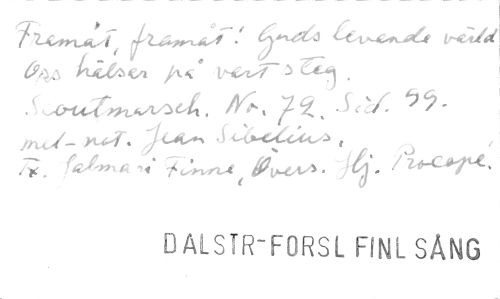 Framåt, framåt! Guds levande värld
Oss hälsar på vart steg.
Scoutmarsch. No. 72. Sid. 99.
mel-not. Jean Sibelius,
Tx. Jalmari Finne, Övers. Hj. Procopé.
DALSTR-FORSL FINL SÅNG